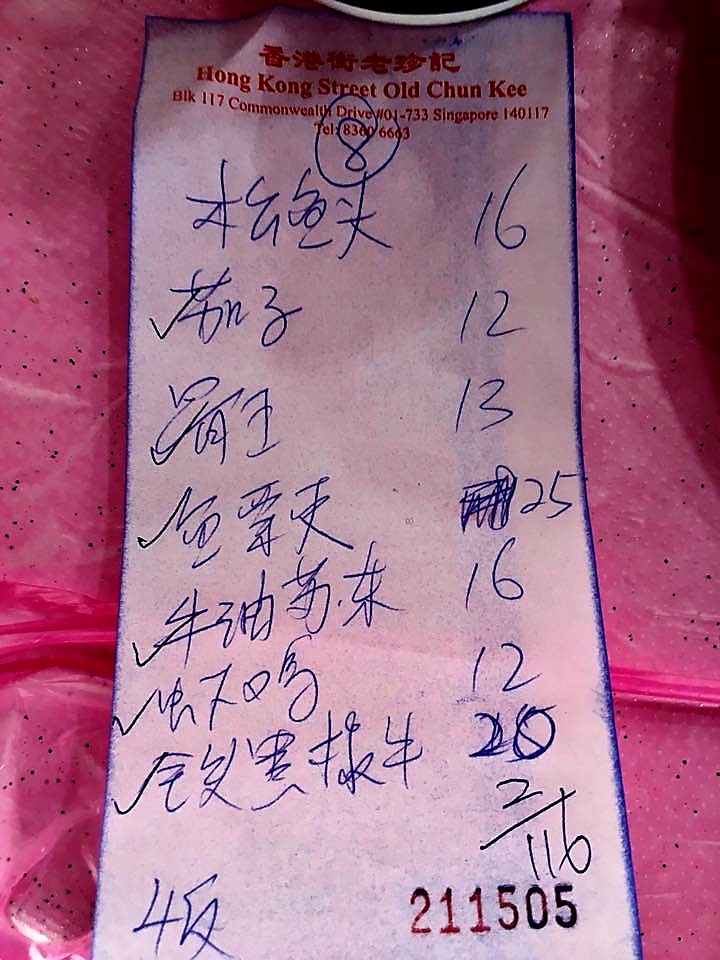 香港街老珍記
Hong Kong Street Old Chun Kee
Blk 117 Commonwealth Drive #01-733 Singapore 140117
Tel: 8360 6663
8
松鱼头 16
茄子 12
13
鱼 25
牛油苏东 16
虾鸡 12
黑椒牛 20
2
116
4反
211505